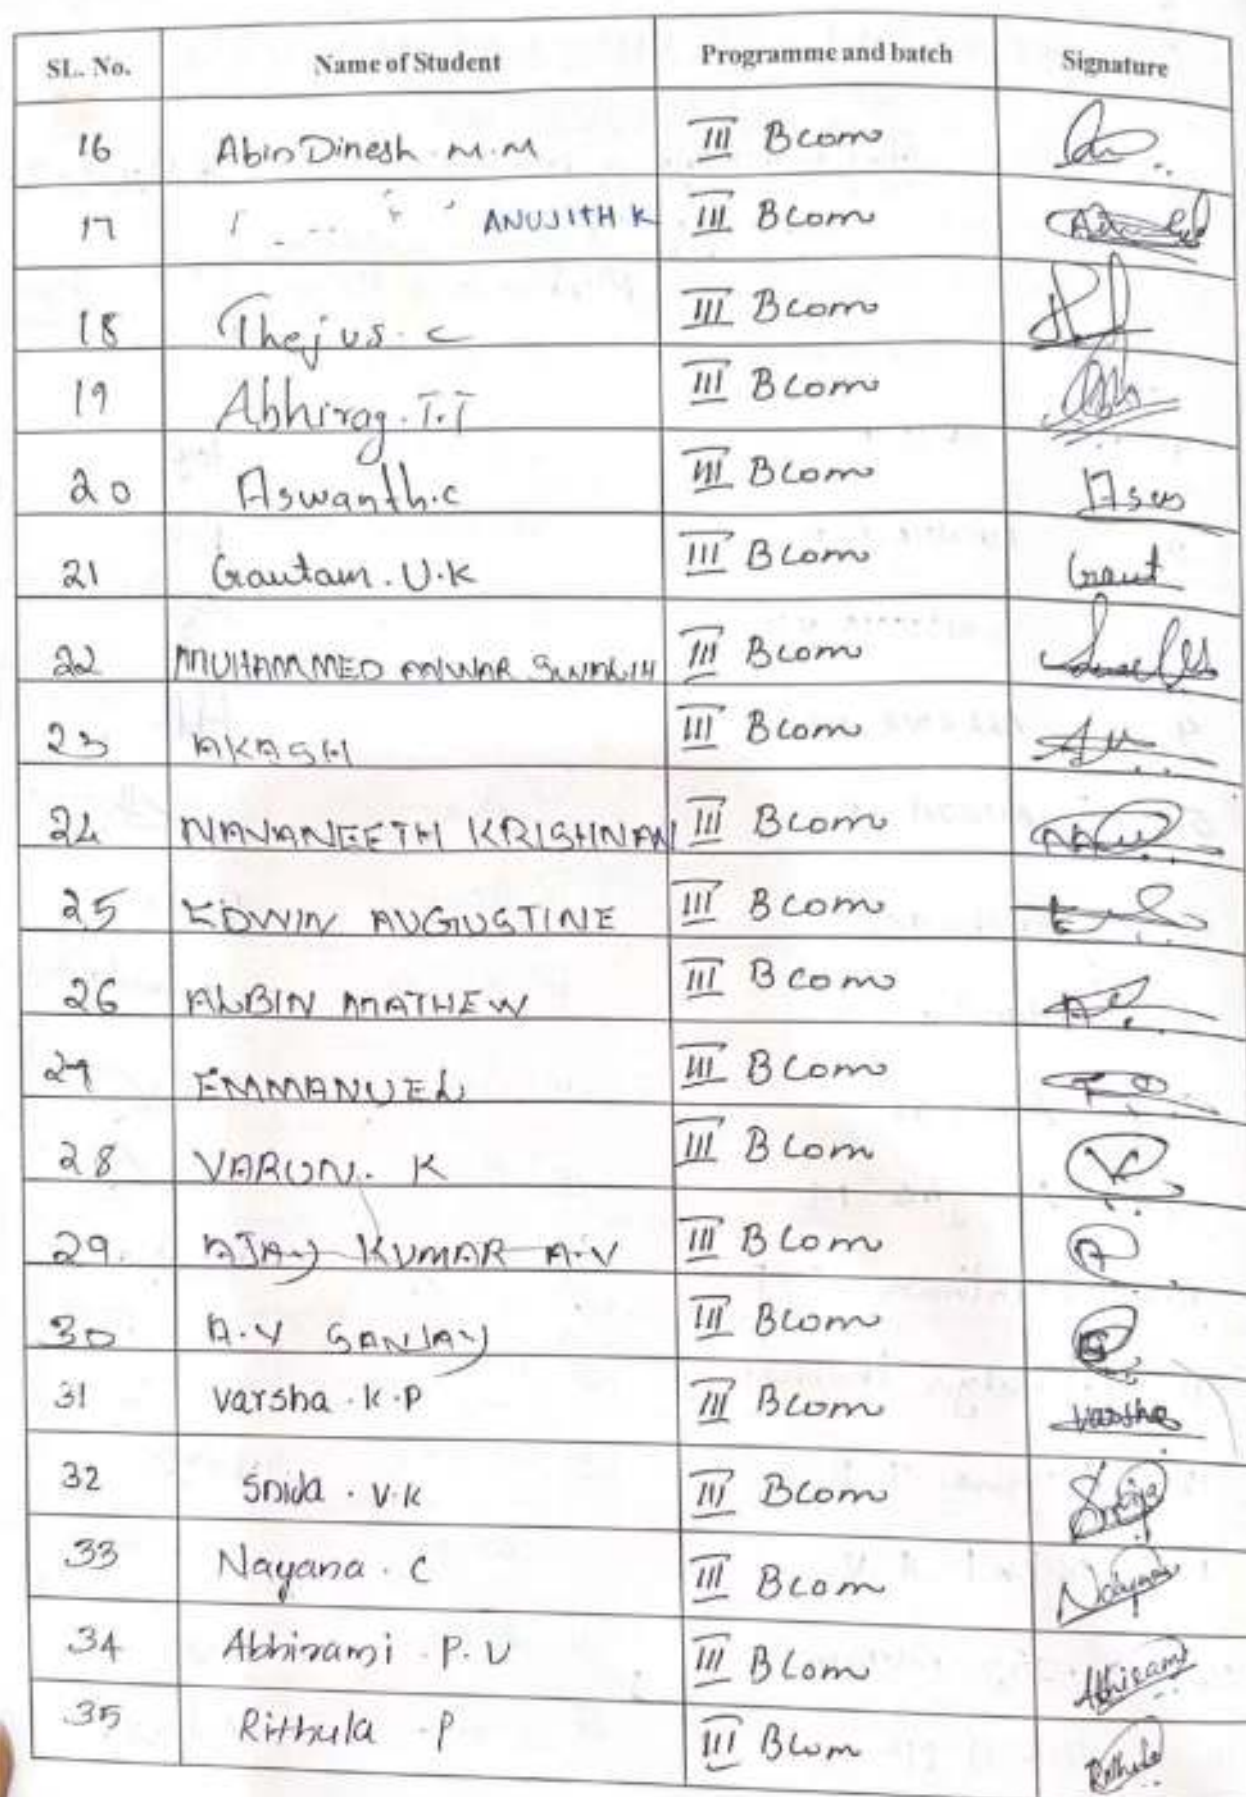 SL. No. Name of Student Programme and batch Signature
16 Abin Dinesh . M.M III Bcom
17 ANUJITH K III Bcom
18 Thejus . C III Bcom
19 Abhirag . T.T III Bcom
20 Aswanth.c III Bcom Asw
21 Gautam . U.K III Bcom Gaut
22 MUHAMMED ANWAR SWALIH III Bcom
23 AKASH III Bcom
24 NAVANEETH KRISHNAN III Bcom
25 EDWIN AUGUSTINE III Bcom
26 ALBIN MATHEW III Bcom
27 EMMANUEL III Bcom
28 VARUN. K III Bcom
29. AJAY KUMAR A.V III Bcom
30 A.V SANJAY III Bcom
31 Varsha . K.P III Bcom Varsha
32 Snida . V.K III Bcom
33 Nayana . C III Bcom Nayana
34 Abhirami . P.V III Bcom Abhirami
35 Rithula . P III Bcom Rithula